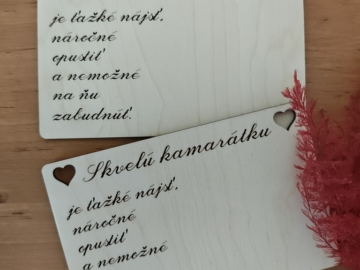 je ťažké nájsť,
náročné
opustiť
a nemožné
na ňu
zabudnúť.
Skvelú kamarátku
je ťažké nájsť,
náročné
opustiť
a nemožné